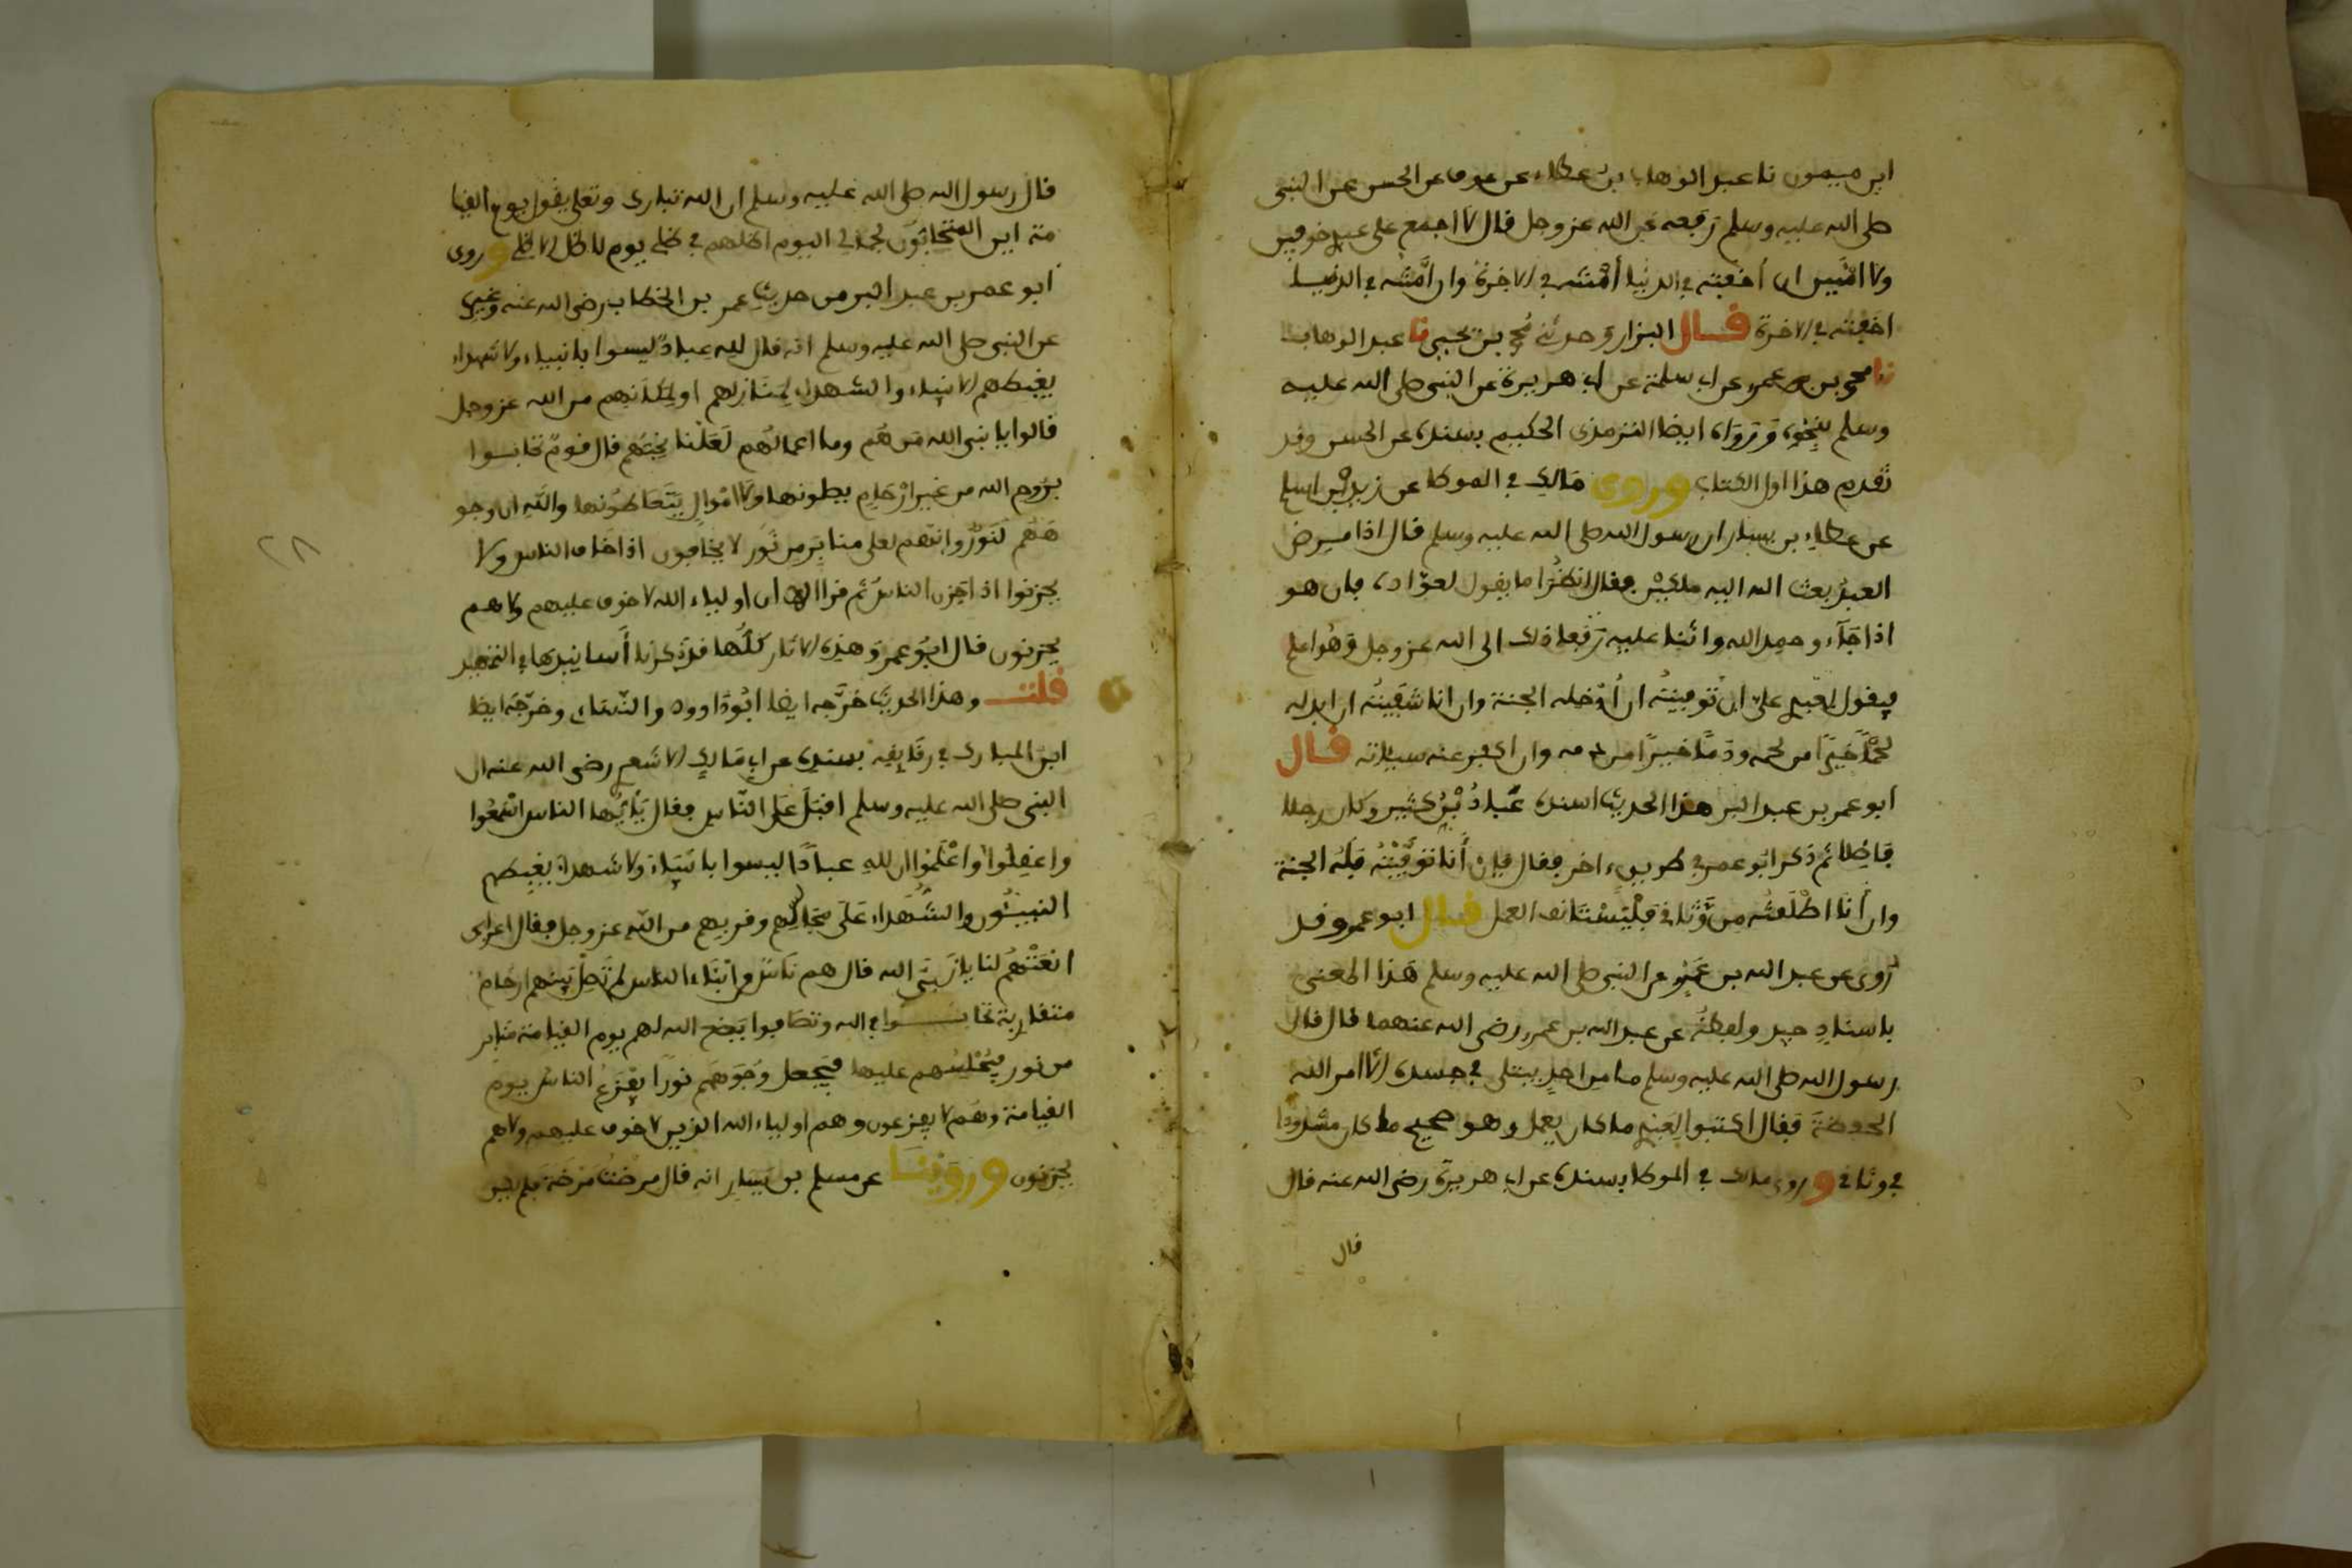 ابن ميمون نا عبد الوهاب بن عطاء عن عوف عن الحسن عن النبي
صلى الله عليه وسلم رفعه عن الله عز وجل قال لا اجمع على عبدي خوفين
ولا امنين ان اخفته في الدنيا أمنته في الاخرة وان امنته في الدنيا
اخفته في الاخرة قال البزار وحدثني محمد بن يحيى نا عبد الوهاب
نا محمد بن عمرو عن ابي سلمة عن ابي هريرة عن النبي صلى الله عليه
وسلم بنحوه ورواه ايضا الترمذي الحكيم بسنده عن الحسن وقد
تقدم هذا اول الكتاب وروى مالك في الموطا عن زيد بن اسلم
عن عطاء بن يسار ان رسول الله صلى الله عليه وسلم قال اذا مرض
العبد بعث الله اليه ملكين فقال انظرا ما يقول لعواده فان هو
اذا جآءه وحمد الله واثنا عليه رفعا ذلك الى الله عز وجل وهو اعلم
فيقول لعبدي علي ان توفيته ان أدخله الجنة وان انا شفيته ان ابدله
لحما خيرا من لحمه ودما خيرا من دمه وان اكفر عنه سيئاته قال
ابو عمر بن عبد البر هذا الحديث اسنده عباد بن كثير وكان رجلا
فاضلا ثم ذكر ابو عمر في طريق اخر فقال فإن أنا توفيته فله الجنة
وان أنا اطلقته من وثاقي فليستانف العمل قال ابو عمر وقد
روى عن عبد الله بن عمرو عن النبي صلى الله عليه وسلم هذا المعنى
باسناد جيد ولفظه عن عبد الله بن عمرو رضي الله عنهما قال قال
رسول الله صلى الله عليه وسلم ما من احد يبتلى في جسده الا امر الله
الحفظة فقال اكتبوا لعبدي ما كان يعمل وهو صحيح ما كان مشدودا
في وثاقي وروى مالك في الموطا بسنده عن ابي هريرة رضي الله عنه قال
قال
قال رسول الله صلى الله عليه وسلم ان الله تبارك وتعلى يقول يوم القيا
مة اين المتحابون لجلالي اليوم اظلهم في ظلي يوم لا ظل الا ظلي وروى
ابو عمر بن عبد البر من حديث عمر بن الخطاب رضي الله عنه وغيره
عن النبي صلى الله عليه وسلم انه قال لله عباد ليسوا بانبياء ولا شهداء
يغبطهم الانبياء والشهداء لمنازلهم او لمكانهم من الله عز وجل
قالوا يا نبي الله من هم وما اعمالهم لعلنا نحبهم قال قوم تحابوا
بروح الله من غير ارحام بطونها ولا اموال يتعاطونها والله ان وجو
ههم لنور وانهم لعلى منابر من نور لا يخافون اذا خاف الناس ولا
يحزنوا اذا حزن الناس ثم قرا الا ان اولياء الله لا خوف عليهم ولا هم
يحزنون قال ابو عمر وهذه الاثار كلها قد ذكرنا أسانيدها في التمهيد
قلت وهذا الحديث خرجه ايضا ابو داوود والنساءي وخرجه ايضا
ابن المبارك في رقايقه بسنده عن ابي مالك الاشعري رضي الله عنه ان
النبي صلى الله عليه وسلم اقبل على الناس فقال يأيها الناس اسمعوا
واعقلوا واعلموا ان لله عبادا ليسوا بانبياء ولا شهداء يغبطهم
النبيئون والشهداء على مجالسهم وقربهم من الله عز وجل فقال اعرابي
انعتهم لنا يا نبي الله قال هم ناس من ابناء الناس لم تصل بينهم ارحام
متقاربة تحابوا في الله وتصافوا يضع الله لهم يوم القيامة منابر
من نور فيجلسهم عليها فيجعل وجوههم نورا يفزع الناس يوم
القيامة وهم لا يفزعون وهم اولياء الله الذين لا خوف عليهم ولا هم
يحزنون وروينا عن مسلم بن يسار انه قال مرضت مرضة فلم يكن
٢٨